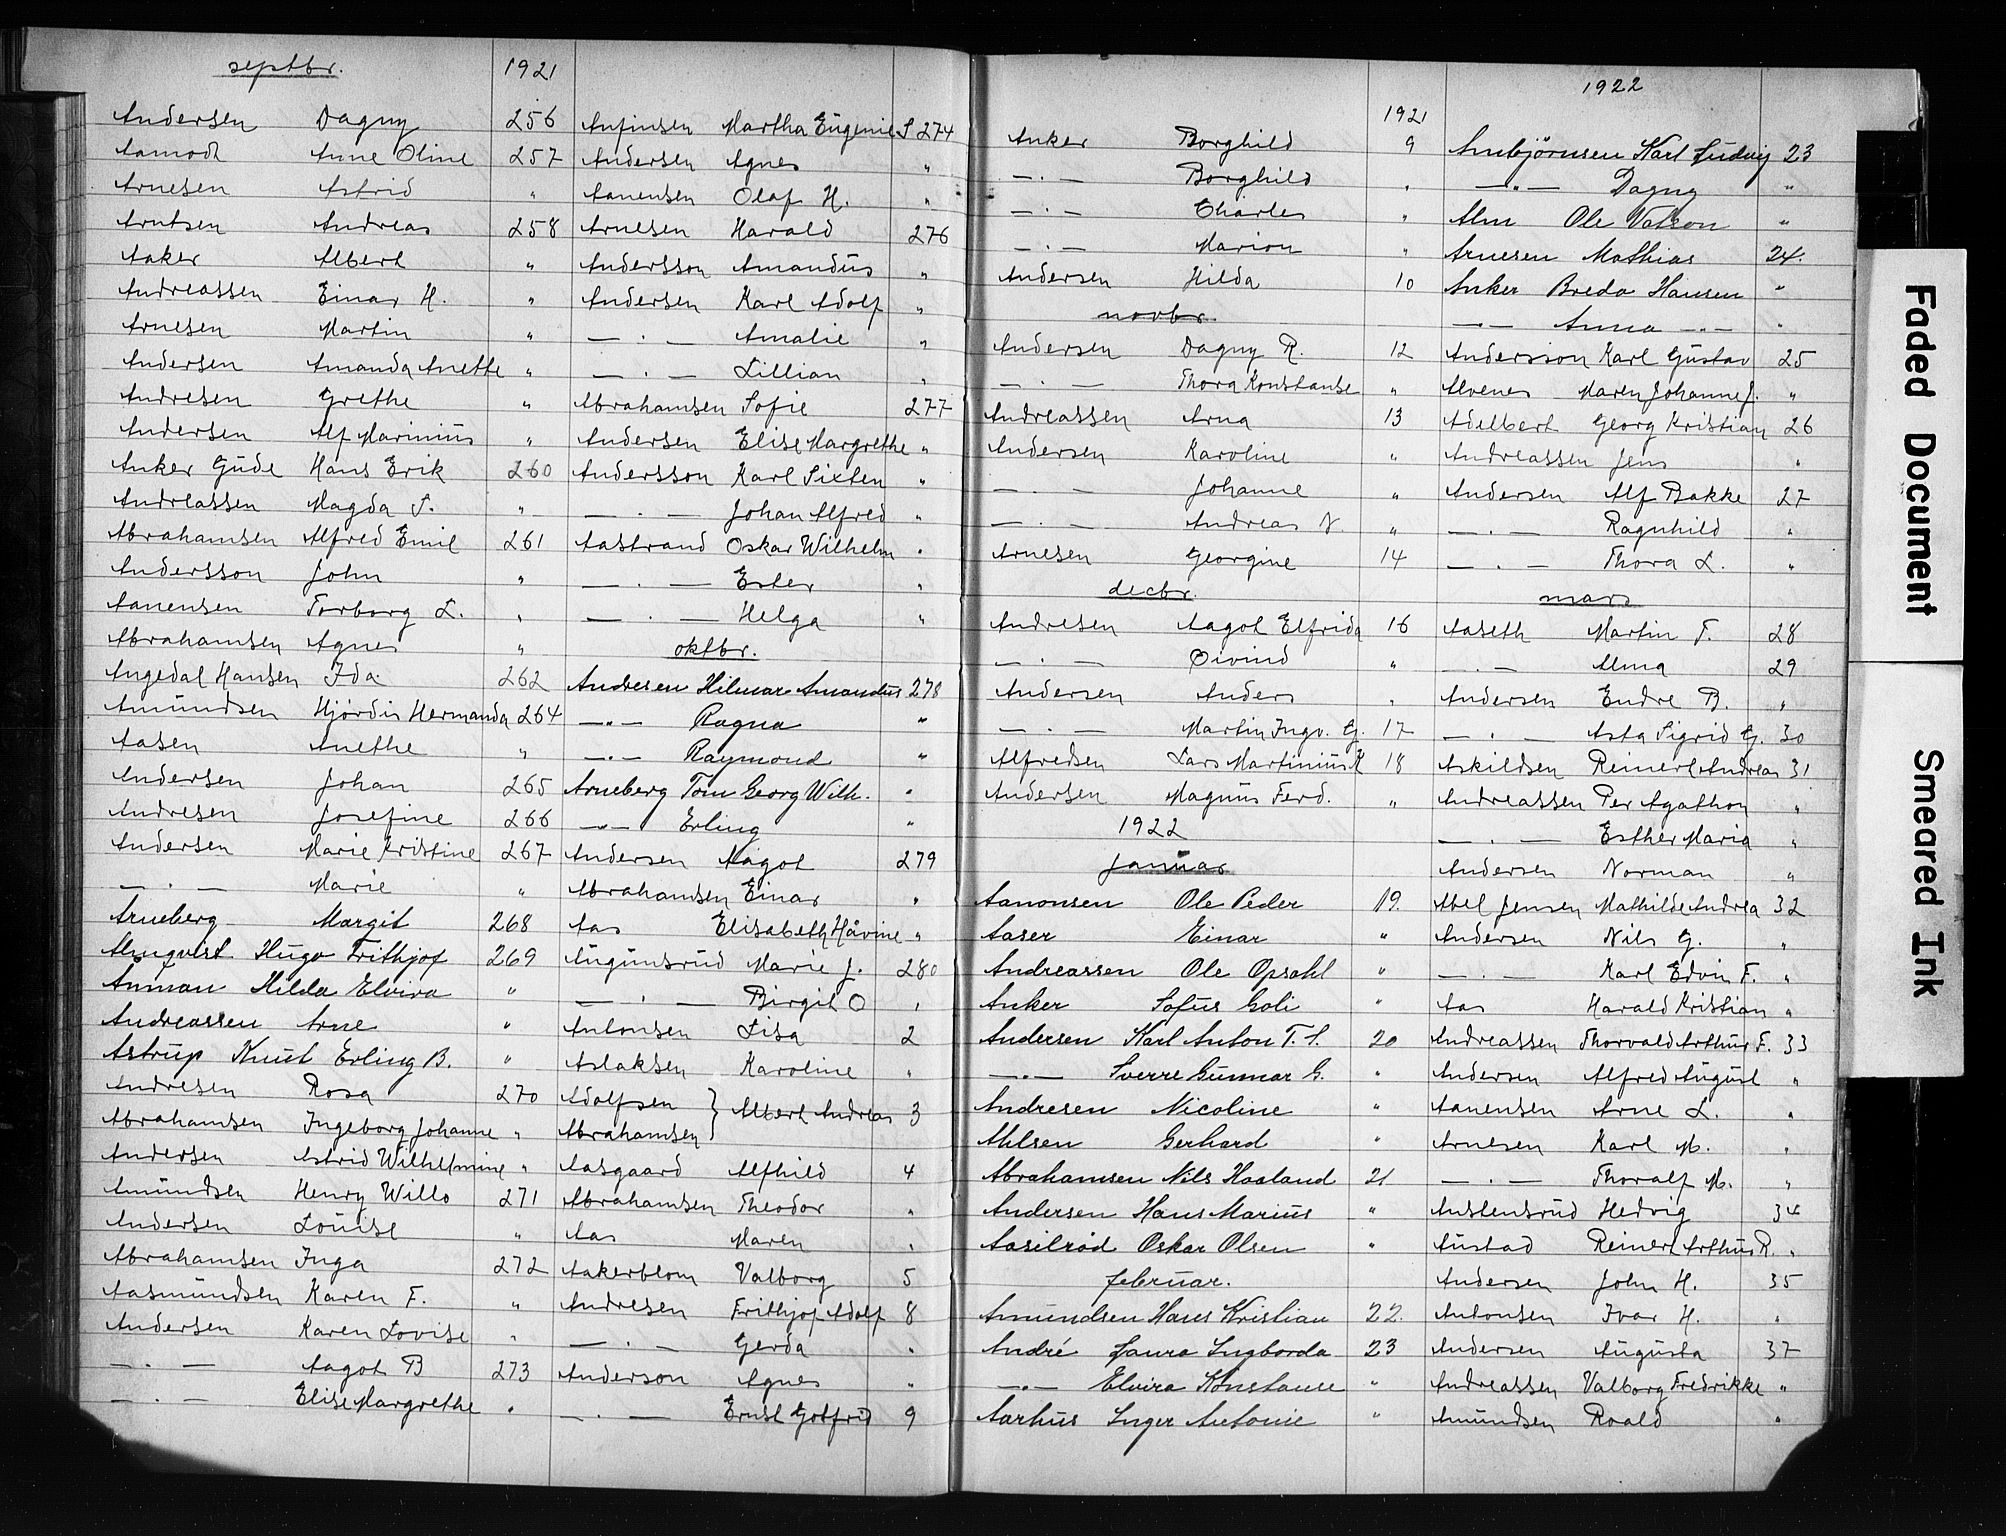 septbr. 1921
Andersen Dagny 256
Aamodt Anne Oline 257
Arnesen Astrid "
Arntsen Andreas 258
Aaker Albert "
Andreassen Einar H. "
Arnesen Martin "
Andersen Amanda Anette "
Andresen Grethe "
Andersen Alf Marinius "
Anker Gude Hans Erik 260
Andreassen Magda S. "
Abrahamsen Alfred Emil 261
Andersson John "
Aanensen Torborg L. "
Abrahamsen Agnes "
Angedal Hansen Ida 262
Amundsen Hjørdis Hermanda 264
Aasen Anethe "
Andersen Johan 265
Andresen Josefine 266
Andersen Marie Kristine 267
— . — Marie "
Arneberg Margit 268
Almqvist Hugo Frithjof 269
Ånman Hilda Elvira "
Andreassen Arne "
Astrup Knut Erling B. "
Andresen Rosa 270
Abrahamsen Ingeborg Johanne "
Andersen Astrid Wilhelmine "
Amundsen Henry Willo 271
Andersen Louise "
Abrahamsen Inga 272
Aasmundsen Karen F. "
Andersen Karen Lovise "
— . — Aagot B 273
— . — Elise Margrethe "
Anfinsen Martha Eugenie S 274
Andersen Agnes "
Aanensen Olaf H. "
Arnesen Harald 276
Andersson Amandus "
Andersen Karl Adolf "
— . — Amalie "
— . — Lillian "
Abrahamsen Sofie 277
Andersen Elise Margrethe "
Andersson Karl Sixten "
— . — Johan Alfred "
Aastrand Oskar Wilhelm "
— . — Ester "
— . — Helga "
oktbr.
Andresen Hilmar Amandus 278
— " — Ragna "
— " — Raymond "
Arneberg Tom Georg Wilh. "
— " — Erling "
Andersen Aagot 279
Abrahamsen Einar "
Aas Elisabeth Håvine "
Augunsrud Marie J. 280
— . — Birgit O "
Antonsen Lisa 2
Aslaksen Karoline "
Adolfsen } Albert Andreas 3
Abrahamsen }
Aasgaard Alfhild 4
Abrahamsen Theodor "
Aas Maren "
Aakerblom Valborg 5
Andresen Frithjof Adolf 8
— . — Gerda "
Anderson Agnes "
— . — Ernst Gotfrid 9
1921
Anker Borghild 9
— . — Borghild "
— . — Charles "
— . — Marion "
Andersen Hilda 10
novbr.
Andersen Dagny R. 12
— . — Thora Konstanse "
Andreassen Arna 13
Andersen Karoline "
— . — Johanne "
— . — Andreas N. "
Arnesen Georgine 14
decbr.
Andresen Aagot Elfrida 16
— . — Øivind "
Andersen Anders "
— . — Martin Ingv. G. 17
Alfredsen Lars Martinius K 18
Andersen Magnus Ferd. "
1922
januar
Aanonsen Ole Peder 19.
Aaser Einar "
Andreassen Ole Opsahl "
Anker Sofus Goli "
Andersen Karl Anton T. S. 20
— . — Sverre Gunnar G. "
Andresen Nicoline "
Ahlsen Gerhard "
Abrahamsen Nils Haaland 21
Andersen Hans Marius "
Aasilrød Oskar Olsen "
februar.
Amundsen Hans Kristian 22.
André Laura Ingborda 23
— . — Elvira Konstanse "
Aarhus Inger Antonie "
1922
Ambjørnsen Karl Ludvig 23
— " — Dagny "
Alm Ole Vatson "
Arnesen Mathias 24.
Anker Breda Hansen "
— " — Anna — " — "
Andersson Karl Gustav 25
Alvenes Maren Johanne J. "
Adelbert Georg Kristian 26
Andreassen Jens "
Andersen Alf Bakke 27
— . — Ragnhild "
— . — Thora L. "
mars
Aaseth Martin F. 28
— . — Alma 29
Andersen Endre B. "
— . — Asta Sigrid G. 30
Askildsen Reinert Andreas 31
Andreassen Per Agathon "
— . — Esther Maria "
Andersen Norman "
Abel Jensen Mathilde Andrea 32
Andersen Nils G. "
— . — Karl Edvin F. "
Aas Harald Kristian "
Andreassen Thorvald Arthur F. 33
Andersen Alfred August "
Aanensen Arne L. "
Arnesen Karl M. "
— . — Thoralf M. "
Anstensrud Hedvig 34
Austad Reinert Arthur R. "
Andersen John H. 35
Antonsen Ivar H. "
Andersen Augusta 37
Andreassen Valborg Fredrikke "
Amundsen Roald "
Faded Document
Smeared Ink